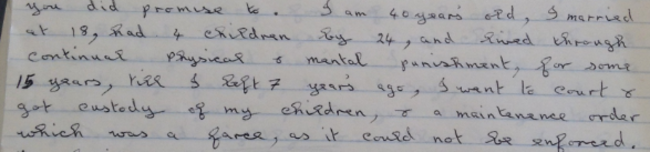 you did promise to. I am 40 years old, I married
at 18, had 4 children by 24, and lived through
continual physical & mantal punishment, for some
15 years, till I left 7 years ago, I went to court &
got custody of my children, & a maintenance order
which was a farce, as it could not be enforced.